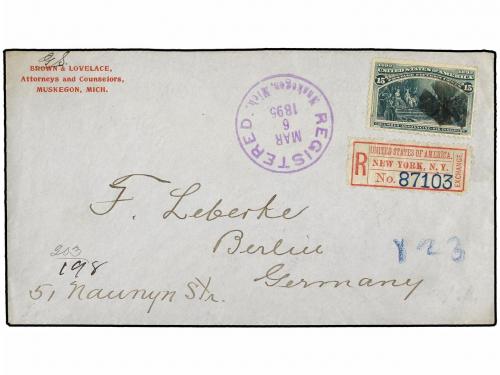 BROWN & LOVELACE,
Attorneys and Counselors,
MUSKEGON, MICH.
REGISTERED.
Muskegon, Mich.
MAR
6
1895
1492 1892
UNITED STATES OF AMERICA
15 15
R
UNITED STATES OF AMERICA.
NEW YORK, N. Y.
No. 87103
EXCHANGE
F. Leberke
Berlin
Germany
51 Naunyn Str.
203
198
123